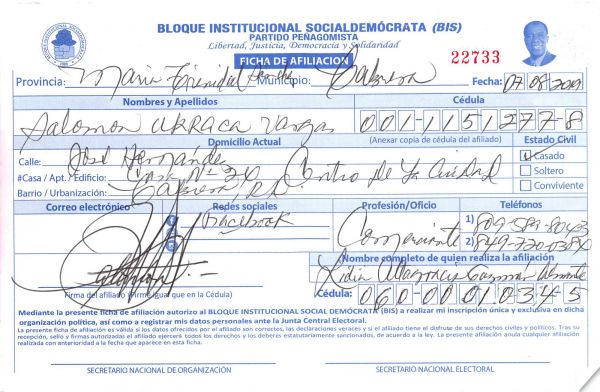 BLOQUE INSTITUCIONAL SOCIALDEMÓCRATA (BIS)
PARTIDO PEÑAGOMISTA
Libertad, Justicia, Democracia y Solidaridad
FICHA DE AFILIACIÓN
22733
Provincia: María Trinidad Sánchez Municipio: Cabrera Fecha: 07-08-2019
Nombres y Apellidos Cédula
Salomon Arraca Vargas 001-1151277-8
Domicilio Actual (Anexar copia de cédula del afiliado) Estado Civil
Calle: José Hernández
Casado
#Casa / Apt. / Edificio: Casa Nº 26 Centro De La Ciudad
Soltero
Barrio / Urbanización: Cabrera R.D.
Conviviente
Correo electrónico Redes sociales Profesión/Oficio Teléfonos
Facebook
Comerciante
1) 809-589-8043
2) 849-720-0384
Nombre completo de quien realiza la afiliación
Lidia Altagracia
Firma del afiliado (Firme igual que en la Cédula)
Cédula: 060-0001034-5
Mediante la presente ficha de afiliación autorizo al BLOQUE INSTITUCIONAL SOCIAL DEMÓCRATA (BIS) a realizar mi inscripción única y exclusiva en dicha
organización política, así como a registrar mis datos personales ante la Junta Central Electoral.
La presente ficha de afiliación es válida si los datos ofrecidos por el afiliado son correctos, las declaraciones veraces y si el titular disfruta de sus derechos civiles y políticos. Tras su
recepción, sello y firmas autorizadas el afiliado ejercerá todos los derechos y los deberes estatutariamente sancionados, de acuerdo a la ley. La presente afiliación anula cualquier afiliación
realizada con anterioridad a la fecha que aparece en esta ficha.
SECRETARIO NACIONAL DE ORGANIZACIÓN SECRETARIO NACIONAL ELECTORAL